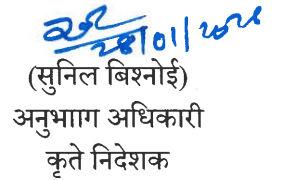 28/01/2026
(सुनिल बिश्नोई)
अनुभााग अधिकारी
कृते निदेशक